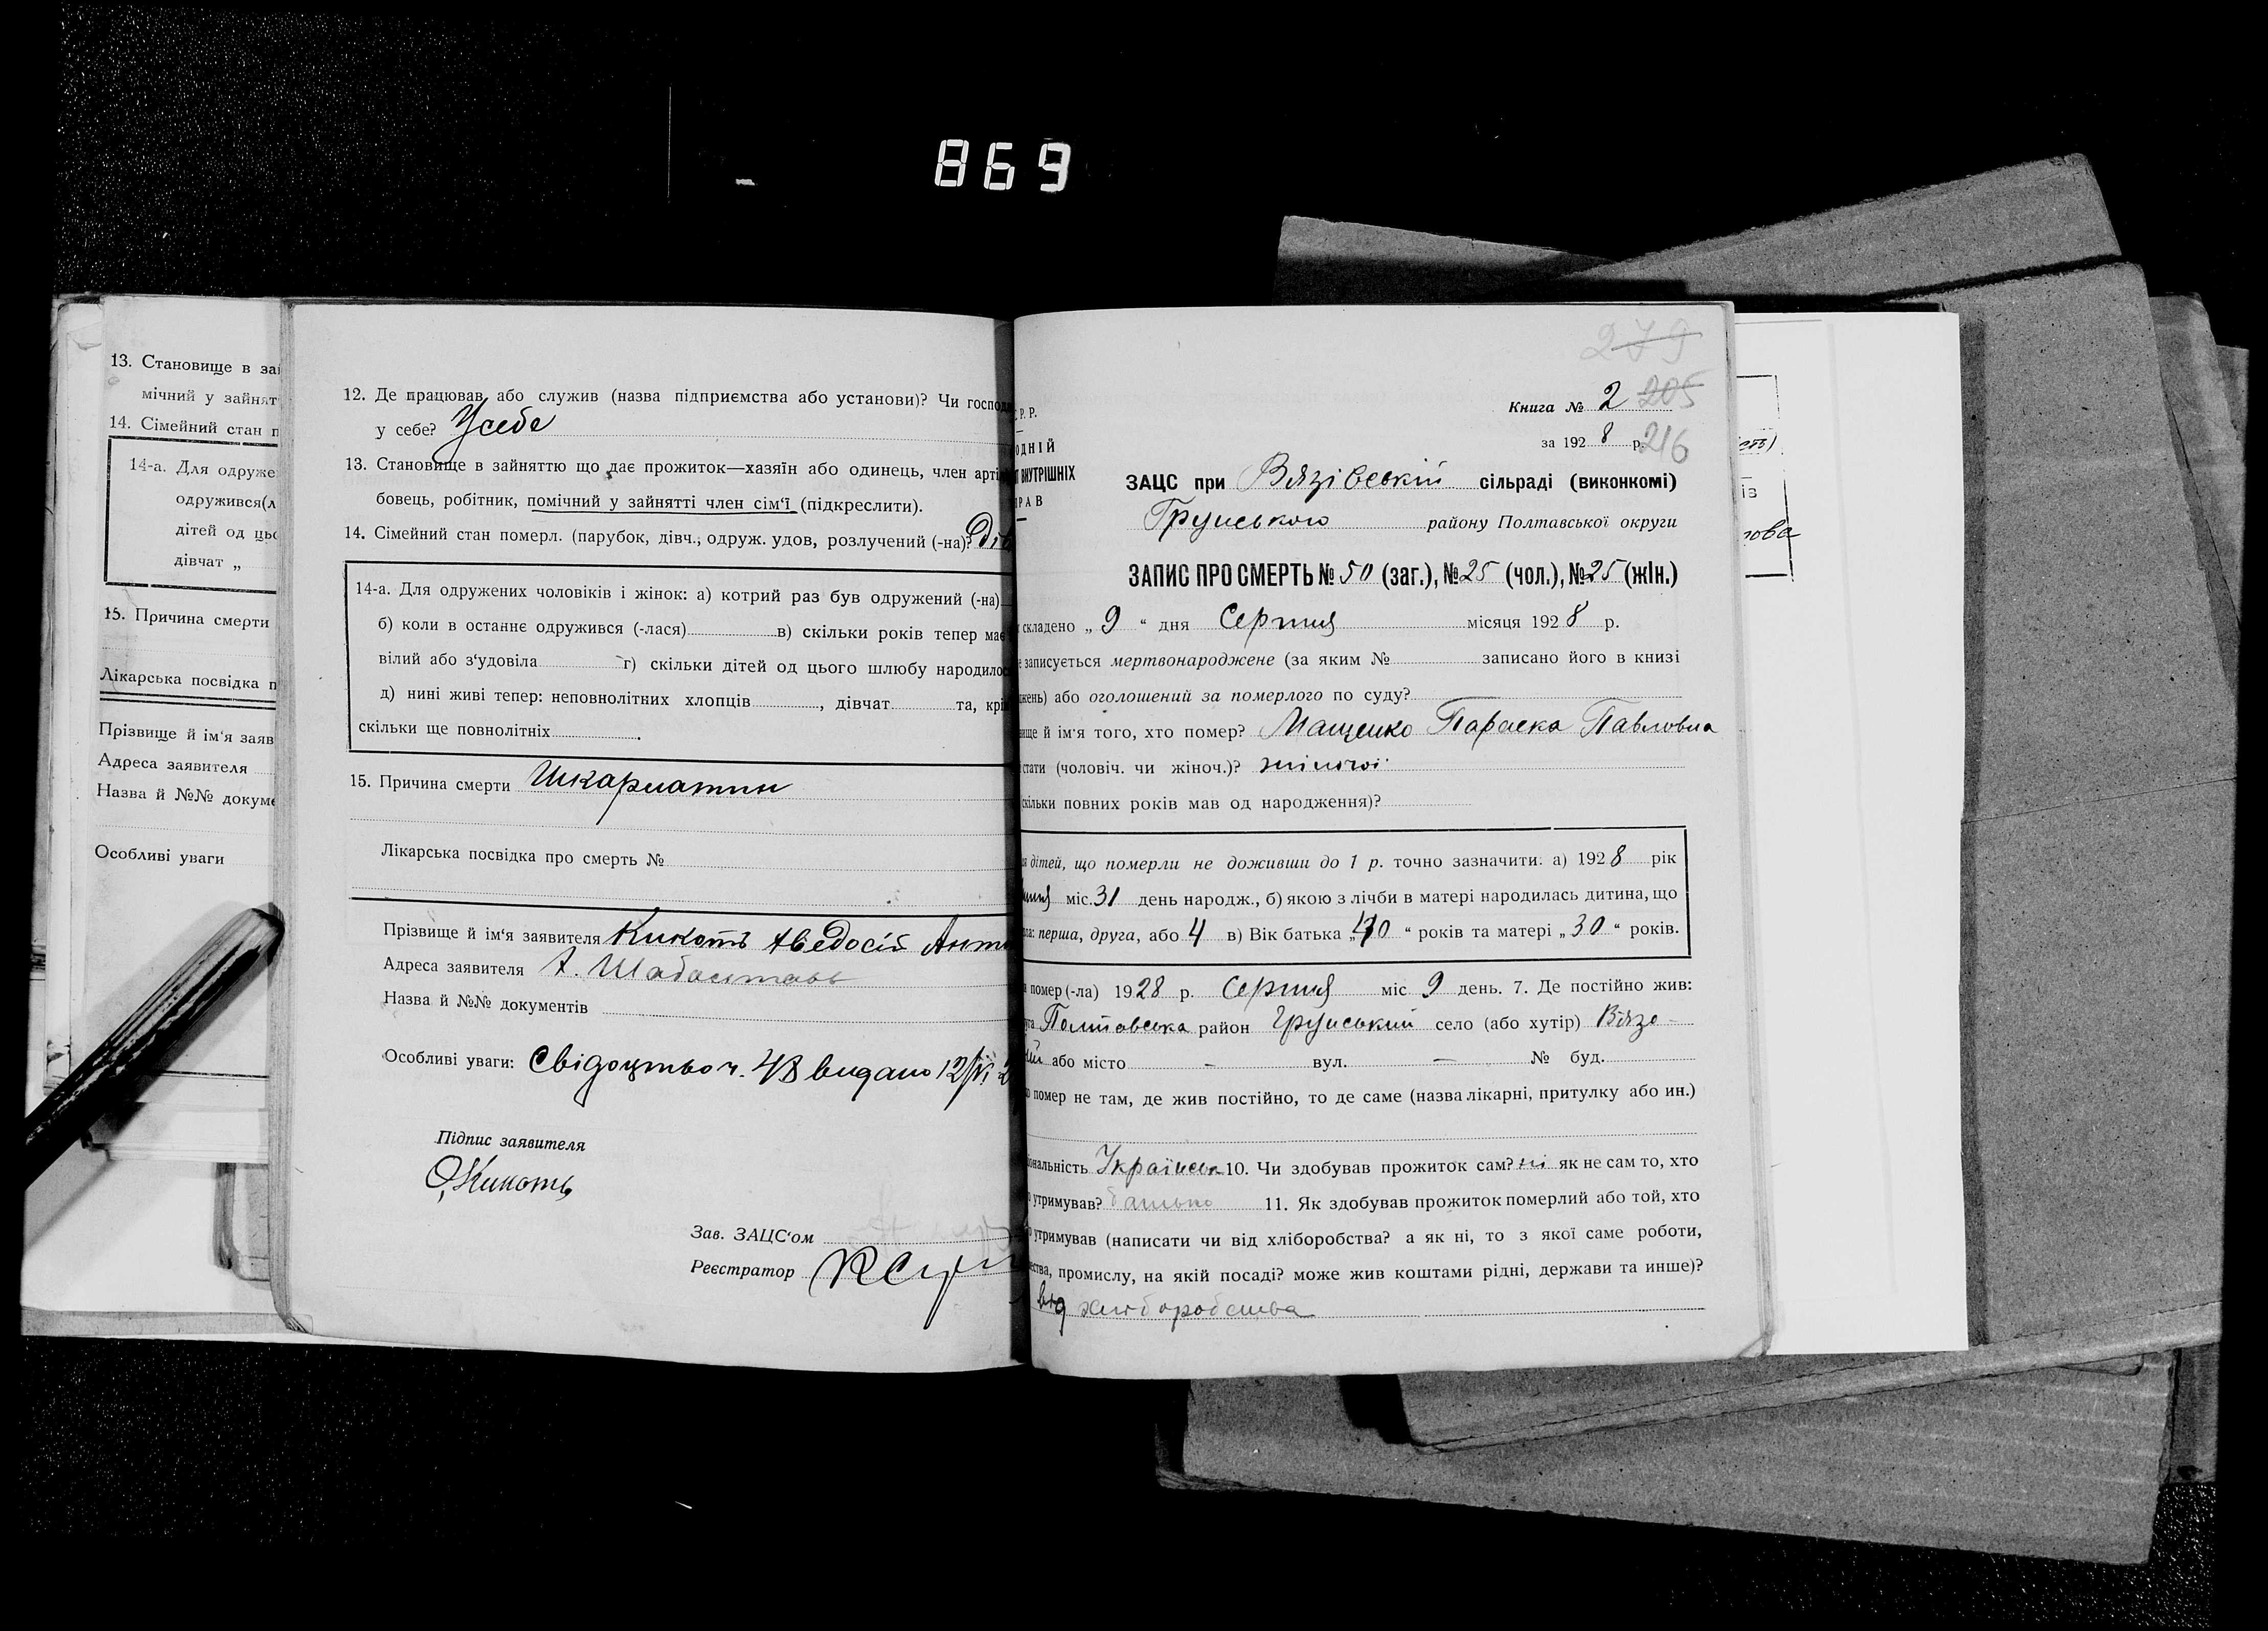 869
13. Становище в зай
мічний у зайнят
14. Сімейний стан п
14-а. Для одруже
одружився(л
дітей од ць
дівчат „
15. Причина смерти
Лікарська посвідка п
Прізвище й ім'я заяв
Адреса заявителя
Назва й №№ докуме
Особливі уваги
12. Де працював або служив (назва підприємства або установи)? Чи господ
у себе? У себе
13. Становище в зайняттю що дає прожиток—хазяїн або одинець, член арті
бовець, робітник, помічний у зайнятті член сім'ї (підкреслити).
14. Сімейний стан померл. (парубок, дівч., одруж. удов, розлучений (-на)? Дів
14-а. Для одружених чоловіків і жінок: а) котрий раз був одружений (-на)
б) коли в останнє одружився (-лася) в) скільки років тепер має
вілий або з'удовіла г) скільки дітей од цього шлюбу народилос
д) нині живі тепер: неповнолітних хлопців , дівчат та, крі
скільки ще повнолітніх .
15. Причина смерти Шкарлатин
Лікарська посвідка про смерть №
Прізвище й ім'я заявителя Кикоть Аведосій Анто
Адреса заявителя
Назва й №№ документів
Особливі уваги: Свідоцтво ч. 48 видано 12/VI 2
Підпис заявителя
Кикоть
Зав. ЗАЦС'ом
Реєстратор
279
Книга № 2 205
за 192 8 р. 216
Р. Р.
ОДНІЙ
Т ВНУТРІШНІХ
РАВ
ЗАЦС при Вязівській сільраді (виконкомі)
Грунського району Полтавської округи
ЗАПИС ПРО СМЕРТЬ № 50 (заг.), № 25 (чол.), № 25 (жін.)
складено „ 9 “ дня Серпня місяця 192 8 р.
записується мертвонароджене (за яким № записано його в книзі
жень) або оголошений за померлого по суду?
вище й ім'я того, хто помер? Мащенко Параска Павловна
стати (чоловіч. чи жіноч.)? жіночої
скільки повних років мав од народження)?
я дітей, що померли не доживши до 1 р. точно зазначити: а) 192 8 рік
міс. 31 день народж., б) якою з лічби в матері народилась дитина, що
ла: перша, друга, або 4 в) Вік батька „40“ років та матері „30“ років.
помер (-ла) 1928 р. Серпня міс 9 день. 7. Де постійно жив:
га Полтавська район Грунський село (або хутір) Вязо-
або місто – вул. – № буд.
помер не там, де жив постійно, то де саме (назва лікарні, притулку або ин.)
іональність Українськ 10. Чи здобував прожиток сам? ні як не сам то, хто
утримував? батько 11. Як здобував прожиток померлий або той, хто
утримував (написати чи від хліборобства? а як ні, то з якої саме роботи,
ства, промислу, на якій посаді? може жив коштами рідні, держави та инше)?
від хліборобства